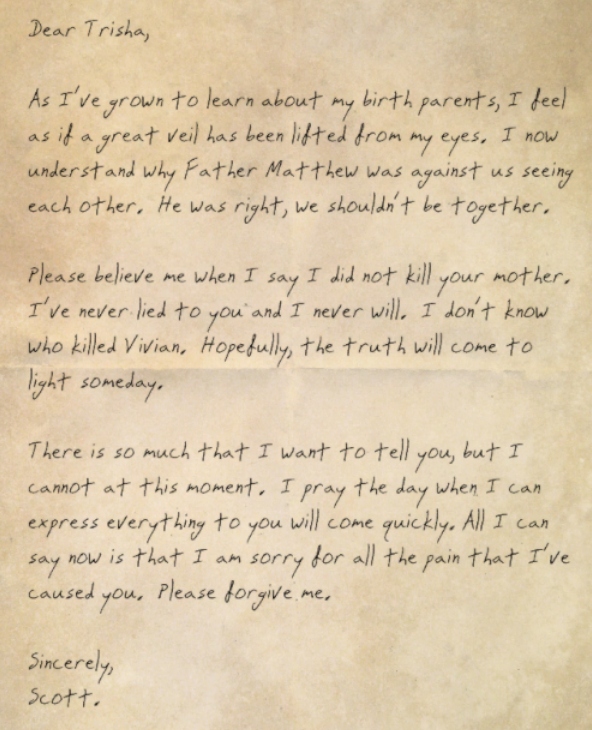 Dear Trisha,
As I've grown to learn about my birth parents, I feel
as if a great veil has been lifted from my eyes. I now
understand why Father Matthew was against us seeing
each other. He was right, we shouldn't be together.
Please believe me when I say I did not kill your mother.
I've never lied to you and I never will. I don't know
who killed Vivian. Hopefully, the truth will come to
light someday.
There is so much that I want to tell you, but I
cannot at this moment. I pray the day when I can
express everything to you will come quickly. All I can
say now is that I am sorry for all the pain that I've
caused you. Please forgive me.
Sincerely,
Scott.